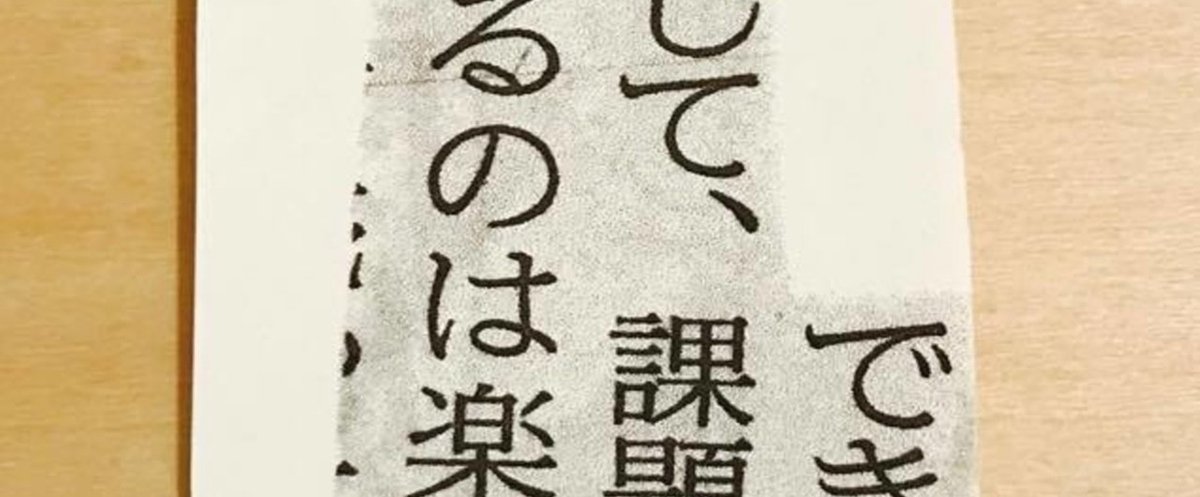 でき
して、課題
るのは楽